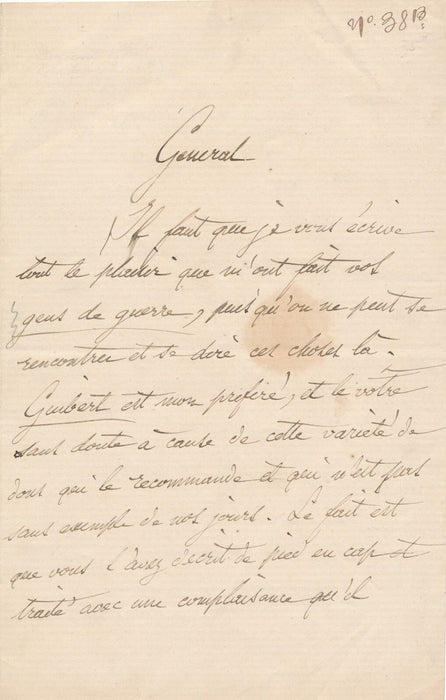 No. 38 B
General
Il faut que je vous écrive
tout le plaisir que m'ont fait vos
gens de guerre, puisqu'on ne peut se
rencontrer et se dire ces choses là.
Guibert est mon préféré, et le vôtre
sans doute à cause de cette variété de
dons qui le recommande et qui n'est pas
sans exemple de nos jours. Le fait est
que vous l'avez décrit de pied en cap et
traité avec une complaisance qu'il